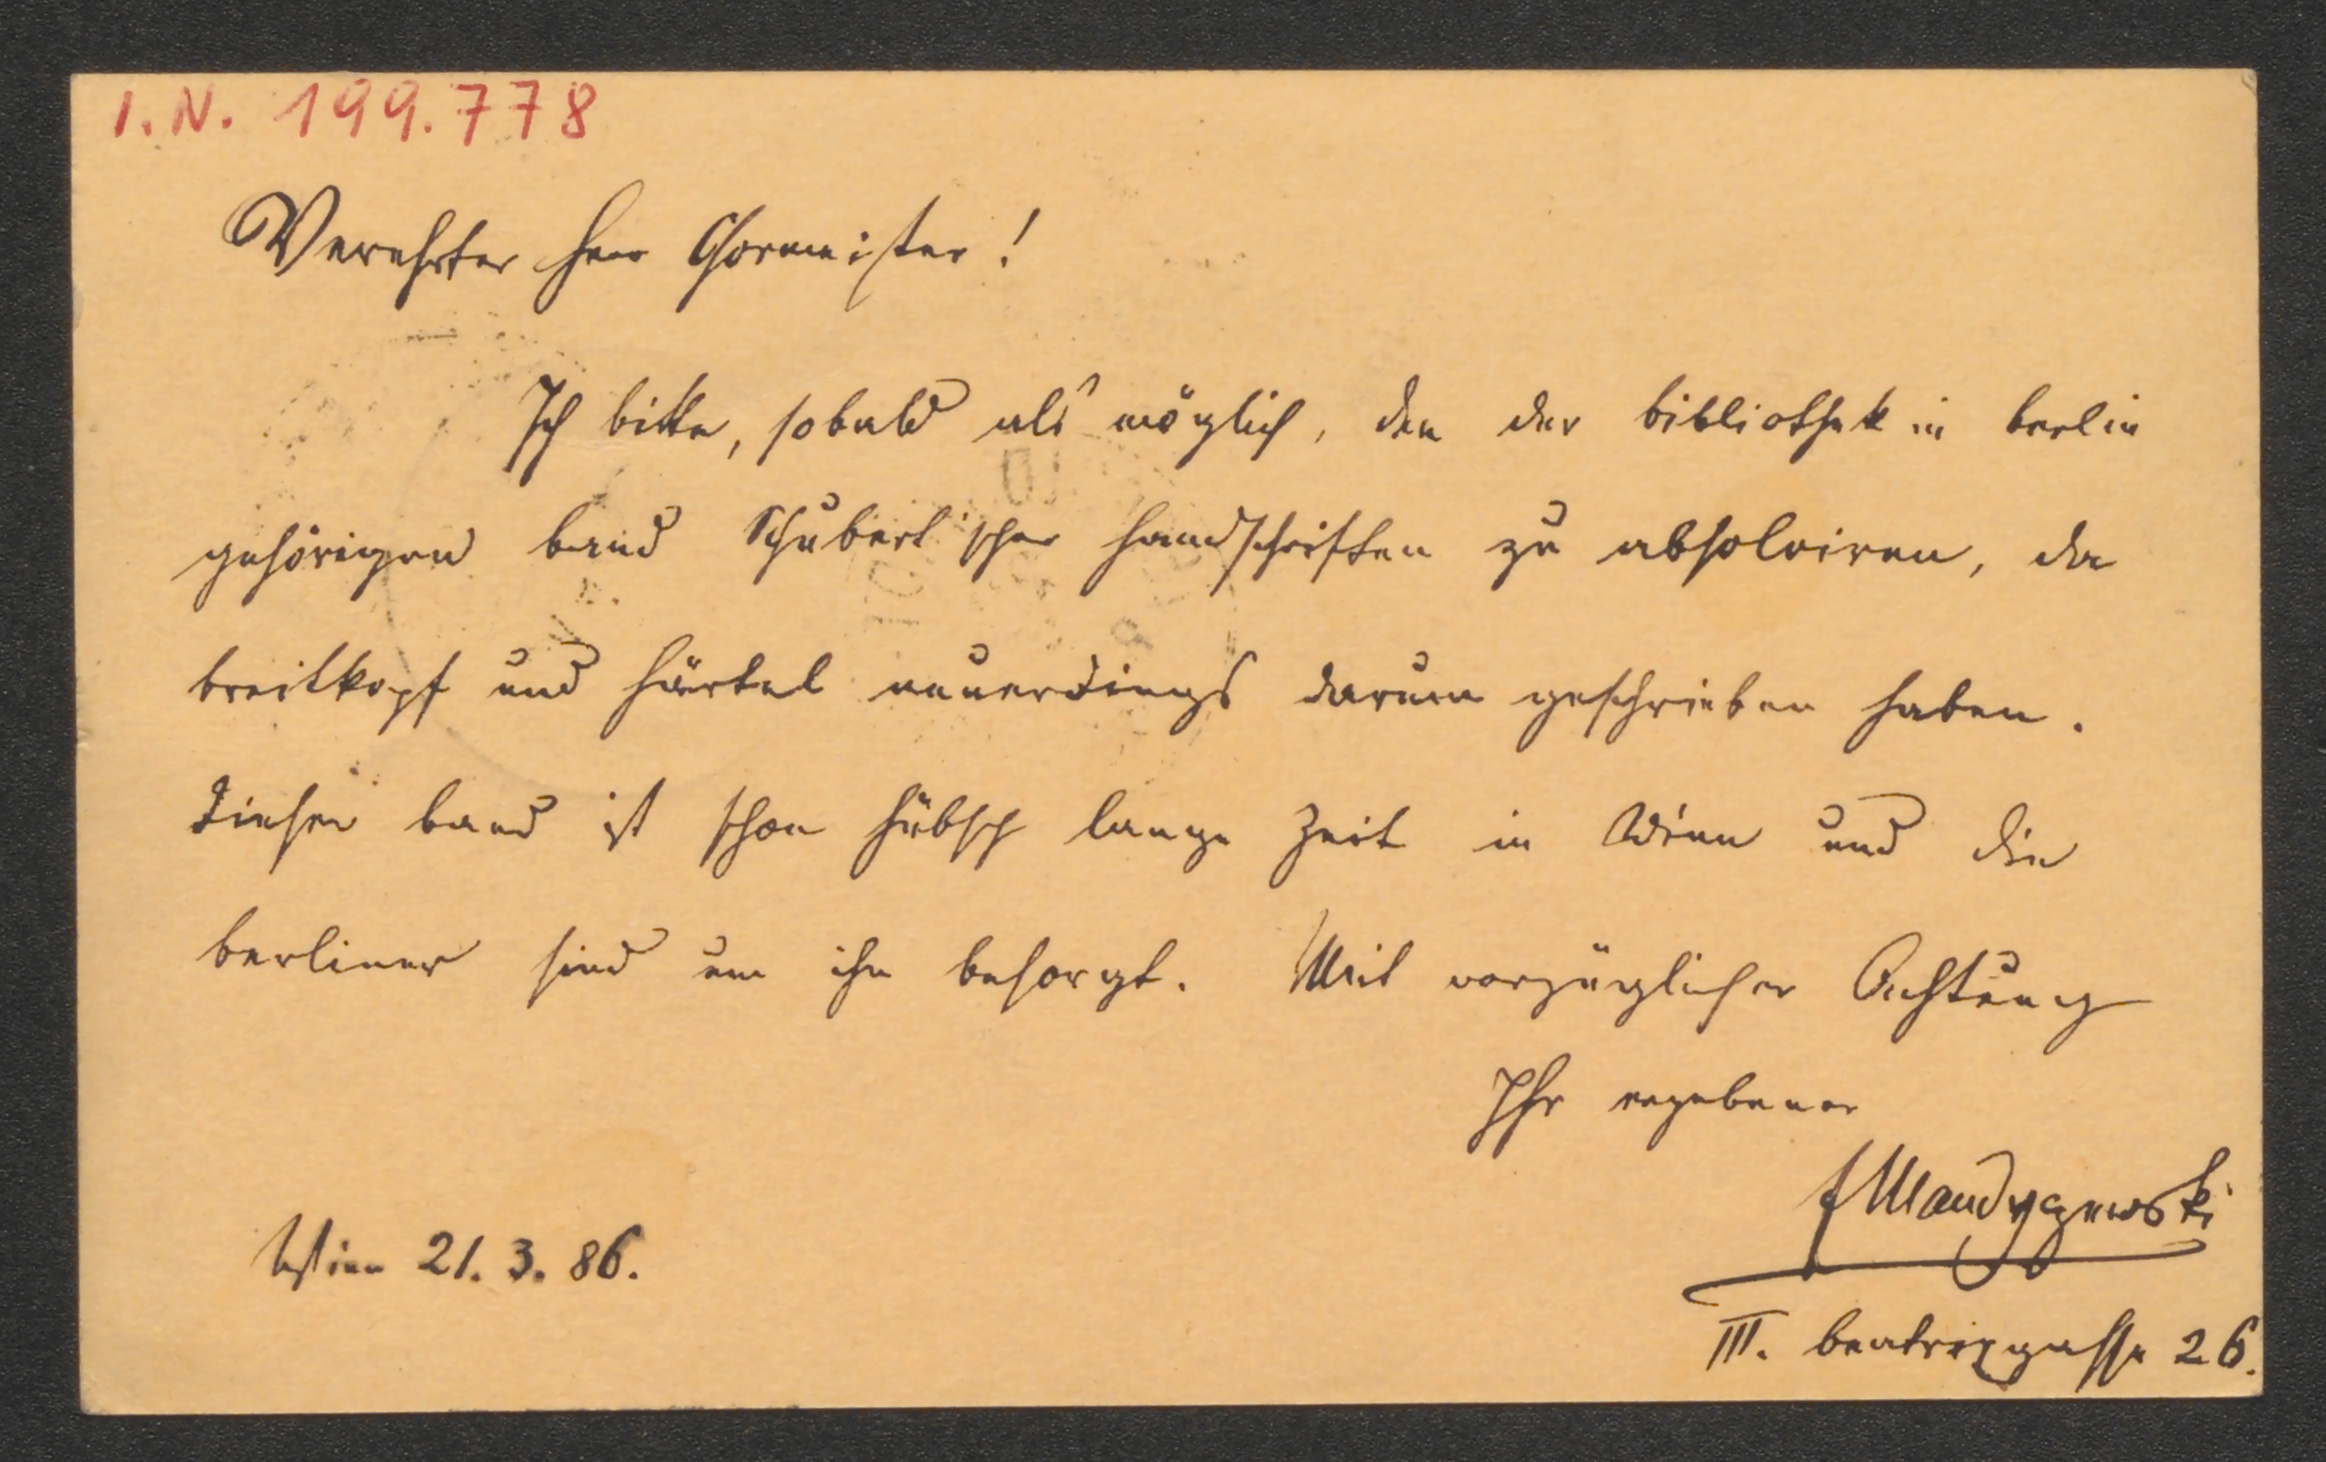 I.N. 199.778
Verehrter Herr Chormeister!
Ich bitte, sobald als möglich, den der bibliothek in berlin
gehörigen band Schubert'scher handschriften zu absolviren, da
breitkopf und härtel neuerdings darum geschrieben haben.
dieser band ist schon hübsch lange Zeit in Wien und die
berliner sind um ihn besorgt. Mit vorzüglicher Achtung
Ihr ergebener
EMandyczewski
Wien 21. 3. 86.
III. beatrixgasse 26.